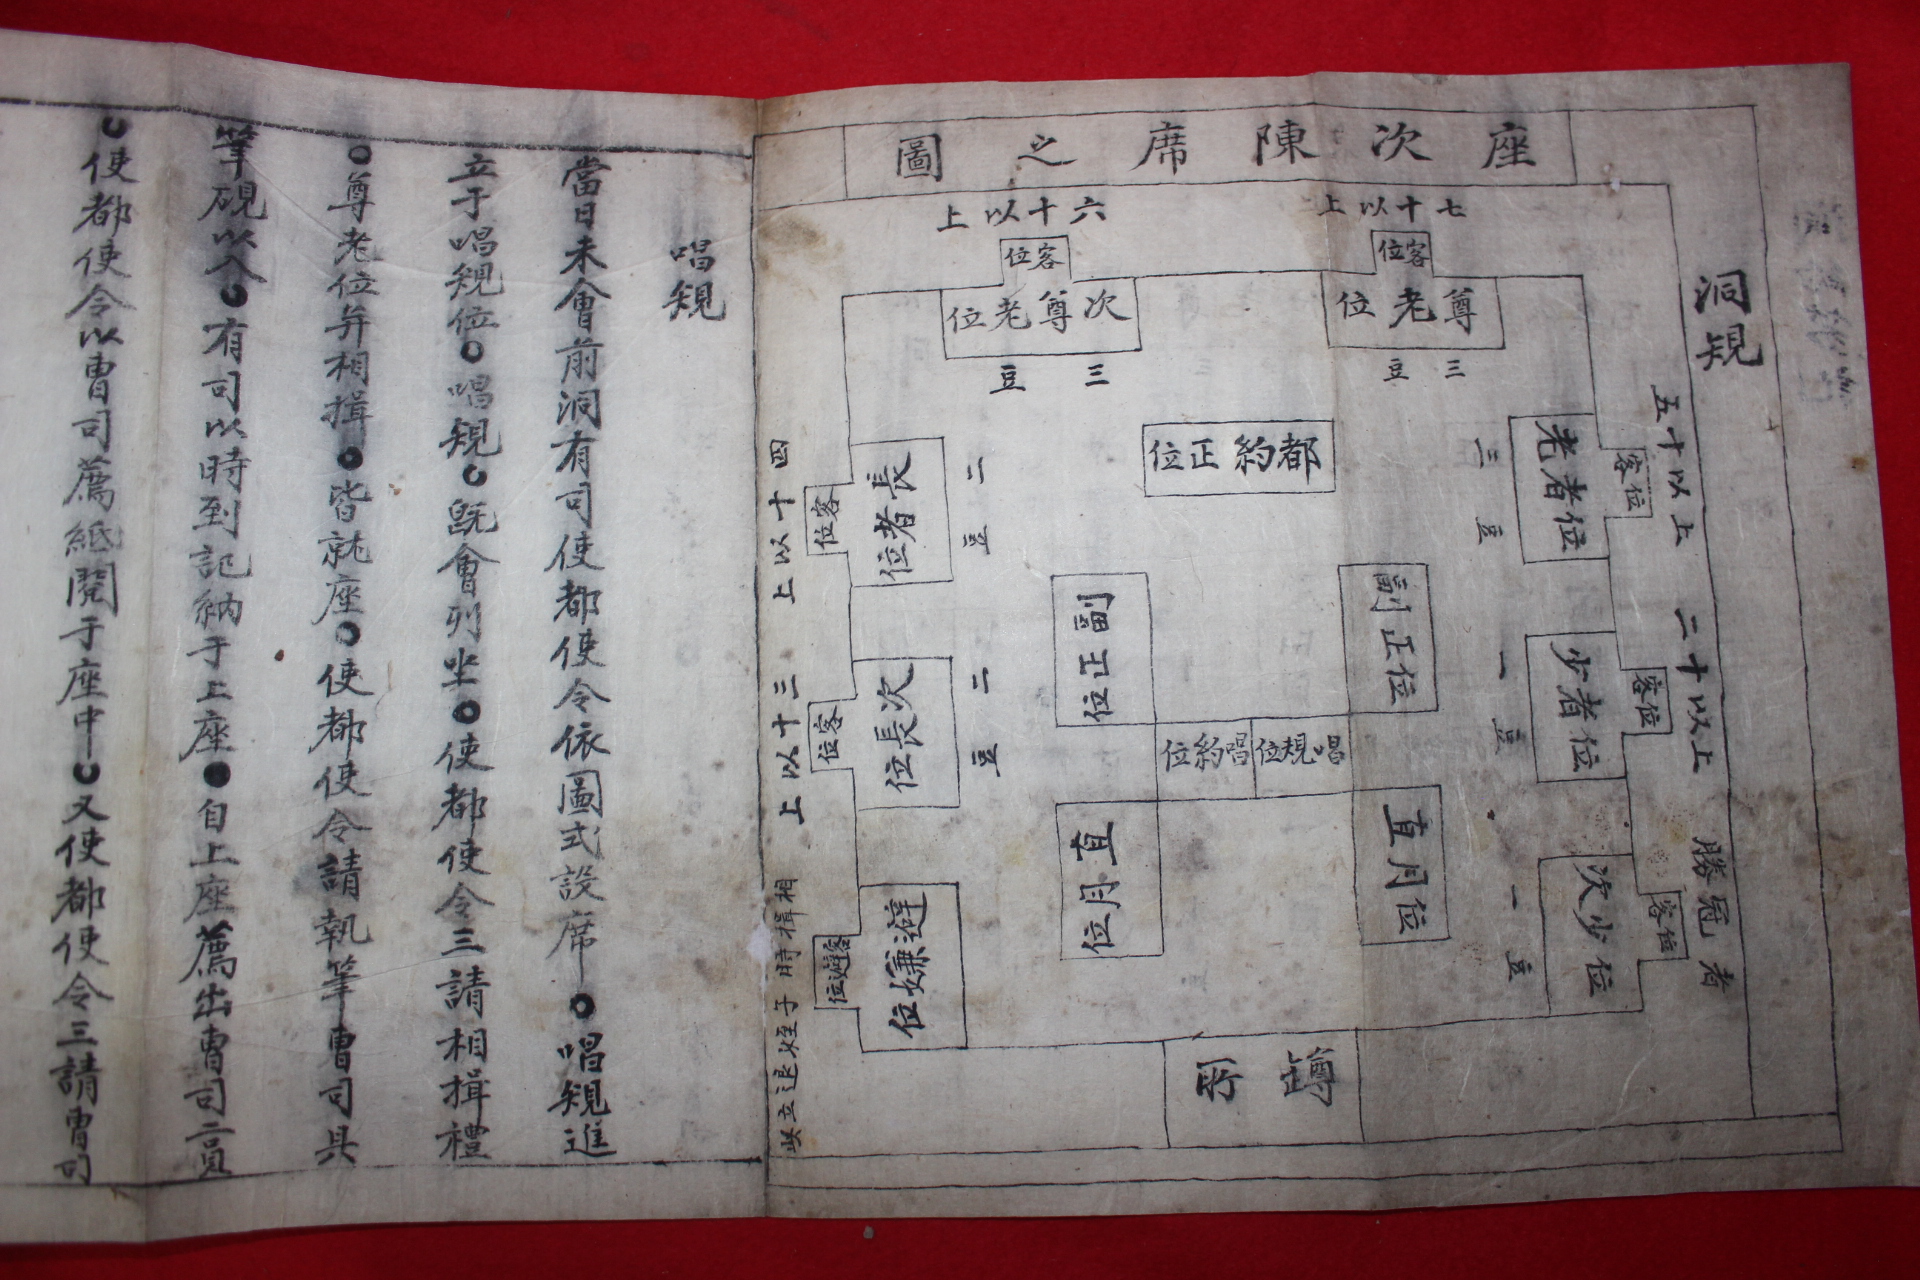 洞規
座次陳席之圖
七十以上
六十以上
客位
客位
尊老位
次尊老位
三豆
三豆
都約正位
五十以上
客位
老者位
三豆
二十以上
客位
少者位
一豆
勝冠者
客位
次少位
一豆
副正位
副正位
唱規位
唱約位
直月位
直月位
四十以上
客位
長者位
二豆
三十以上
客位
次長位
二豆
避嫌位
相揖時子姪退立
罇所
唱規
當日未會前洞有司使都使令依圖式設席○唱規進
立于唱規位○唱規○旣會列坐○使都使令三請相揖禮
○尊老位并相揖○皆就座○使都使令請執筆曹司具
筆硯以入○有司以時到記納于上座○自上座薦出曹司二員
○使都使令以曹司薦紙閱于座中○又使都使令三請曹司